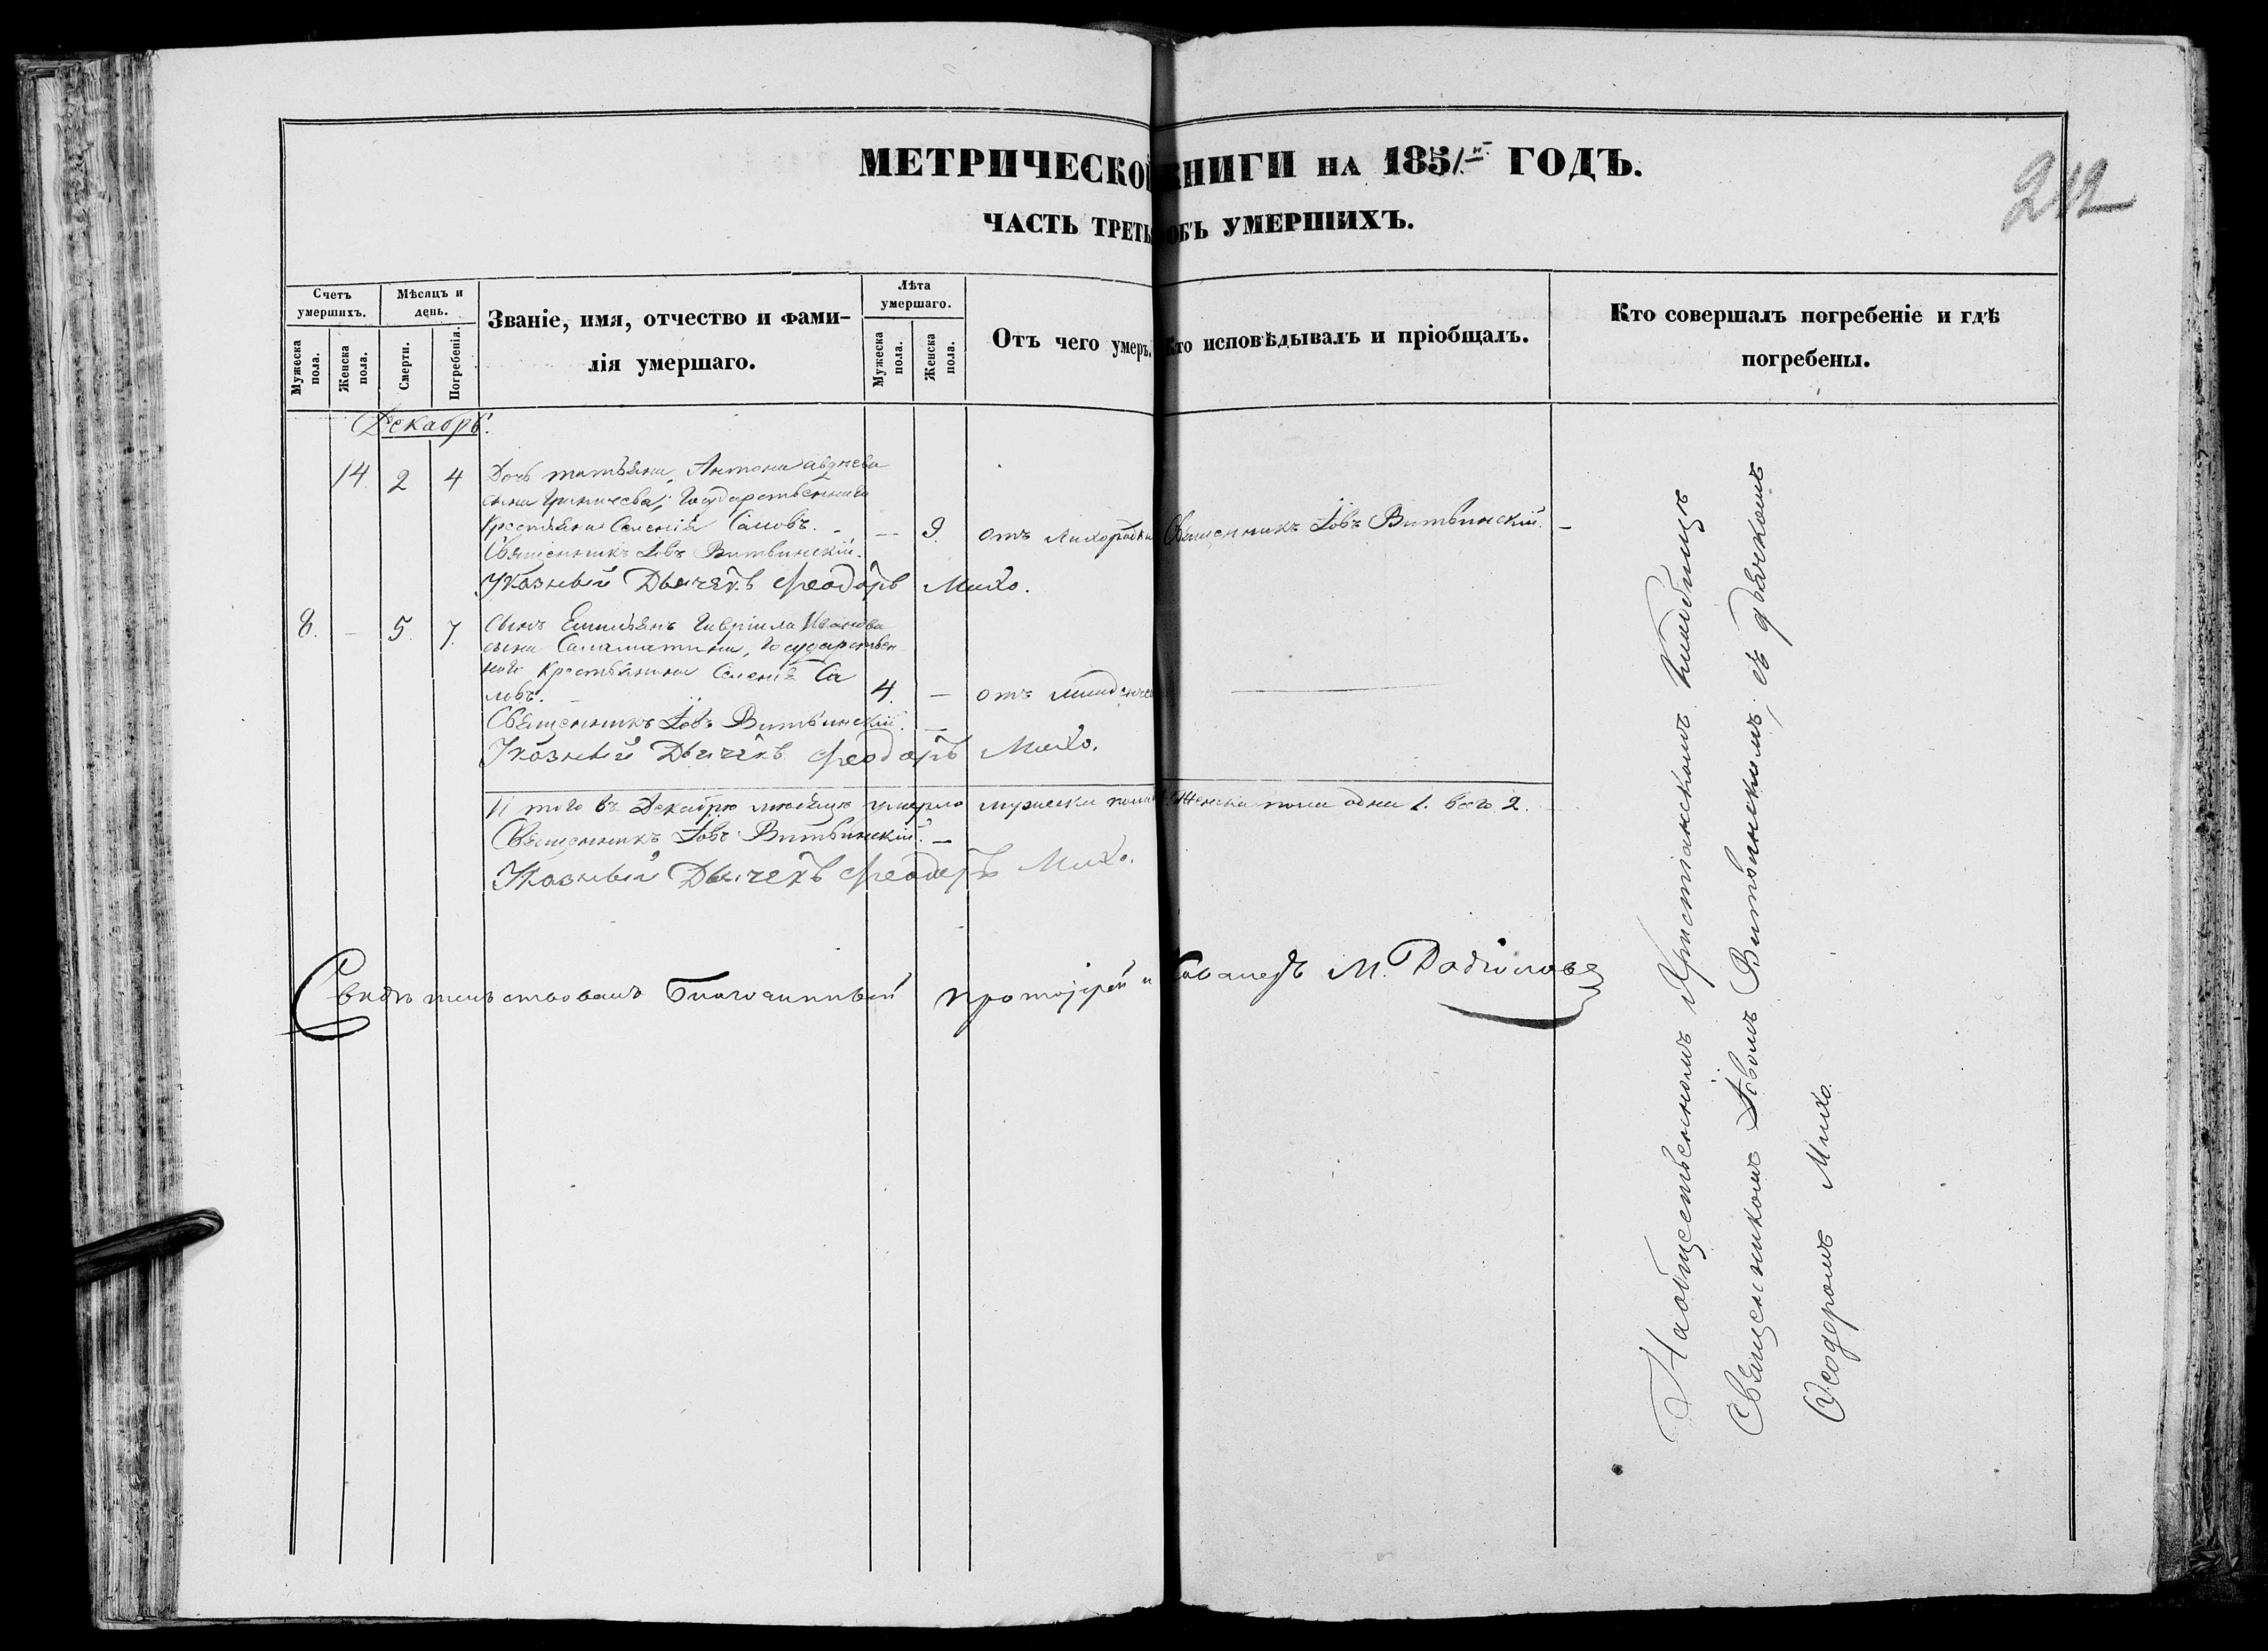 МЕТРИЧЕСКОЙ КНИГИ НА 1851й ГОДЪ.
212
ЧАСТЬ ТРЕТЬ ОБЪ УМЕРШИХЪ.
Счетъ умершихъ.
Мужеска пола.
Женска пола.
Мѣсяцъ и день.
Смерти.
Погребенія.
Званіе, имя, отчество и фами-
лія умершаго.
Лѣта умершаго.
Мужеска пола.
Женска пола.
Отъ чего умеръ.
Кто исповѣдывалъ и пріобщалъ.
Кто совершалъ погребеніе и гдѣ
погребены.
Декабрь.
14. 2 4 Дочь татьяна, Антона авдѣева
сына Государственнаго
Крестьянина Селенія Саловъ. - — 9. отъ лихорадки Священникъ Іовъ Витвинскій. —
Священникъ Іовъ Витвинскій.
Указный Дьячекъ Феодоръ Михо.
8. — 5. 7. Сынъ Емильянъ Гавріила Иванова
сына Саламатина, Государствен
наго Крестьянина Селенія Са
ловъ. — 4. — отъ младенче
Священникъ Іовъ Витвинскій. —
Указный Дьячекъ Феодоръ Михо.
И того въ Декабрѣ мѣсяцѣ умерло мужеска пола Женска пола одна 1. всего 2.
Священникъ Іовъ Витвинскій. —
Указный Дьячекъ Феодоръ Михо.
Свидѣтельствовалъ Благочинный протоіерей и Кавалеръ М.
На общественномъ Христіанскомъ Кладбищѣ
Священникомъ Іовомъ Витвинскимъ, съ дьячкомъ
Феодоромъ Михо.